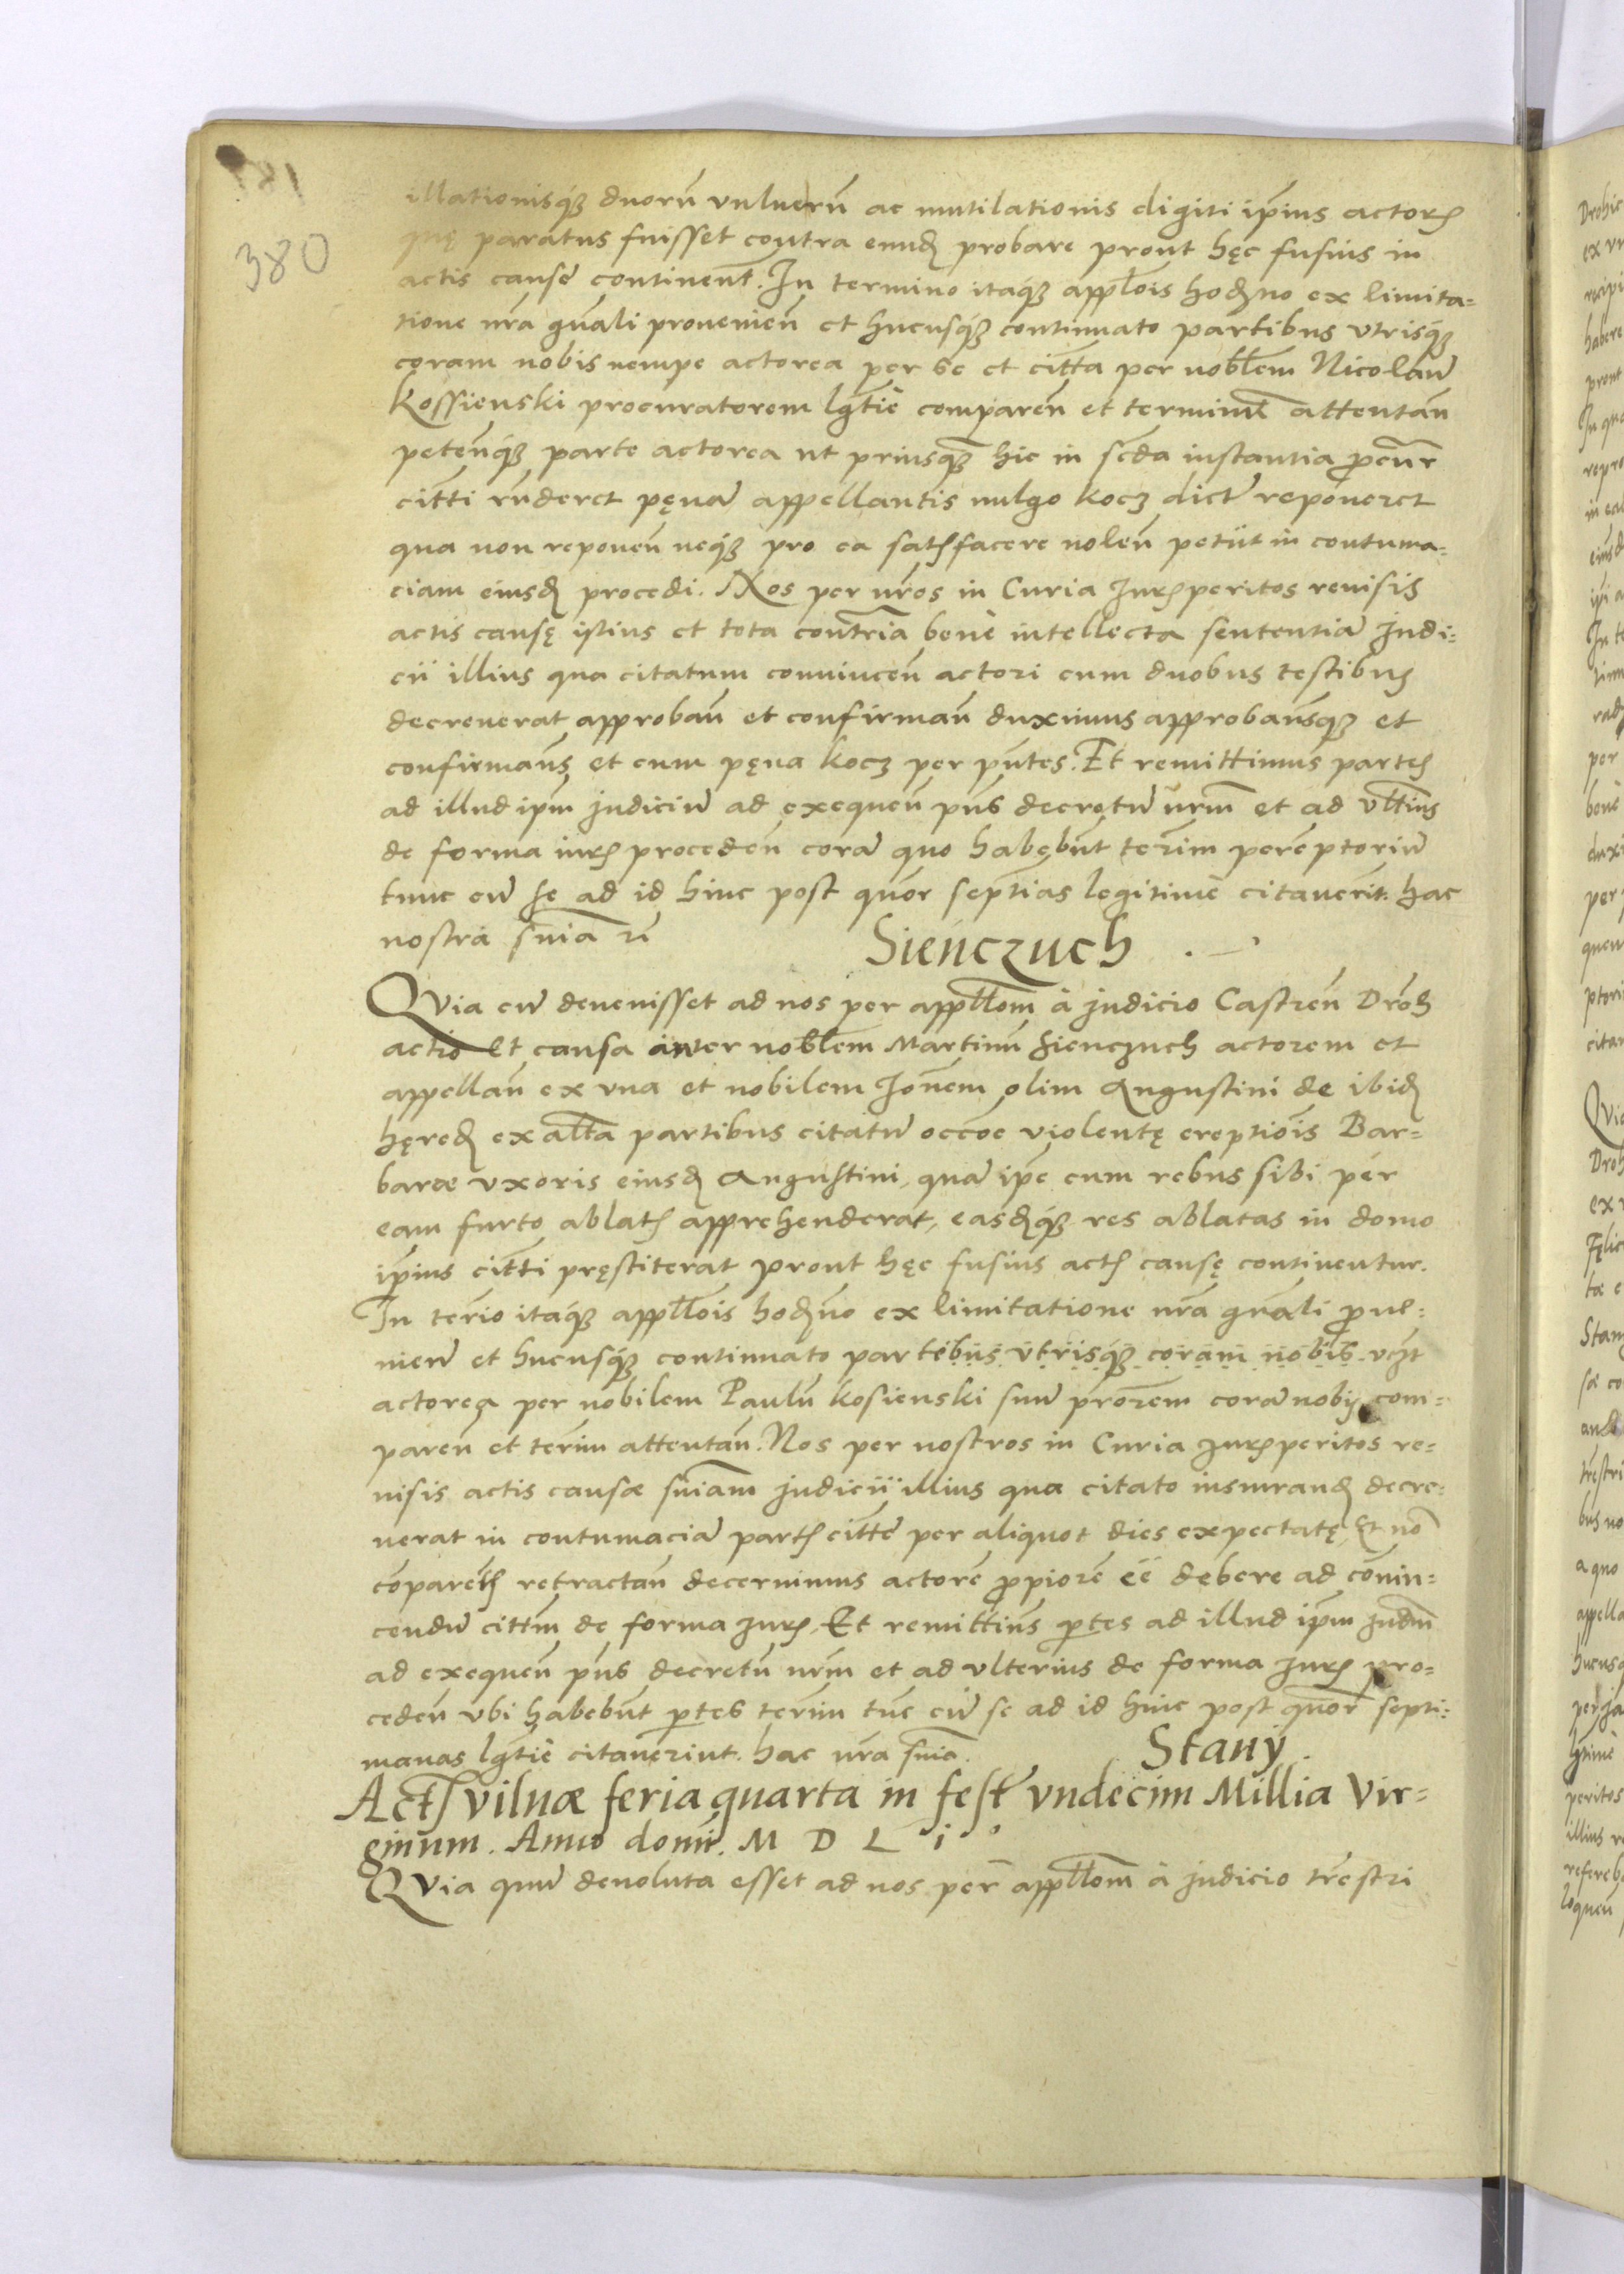 181
380
illationisq́ꝫ duorū vulnerū ac mutilationis digiti ip̄ius actorꝭ
quę paratus fuisset contra eundꝫ probare prout hęc fusius in
actis causę continent̄. In termino itaq́ꝫ appl̄lois hodꝫno ex limita=
tione nr̄a gn̄ali prouenien̄ et hucusq́ꝫ continuato partibus vtrisq́ꝫ
coram nobis nempe actorea per se et citt̄a per nobl̄lem Nicolaū
Kossienski procuratorem lḡtie comparen̄ et terminū attentan̄
peten̄q́ꝫ parte actorea ut priusq̄ꝫ hic in scd̄a instantia procur̄
citt̄i rn̄deret pęnā appellantis uulgo Kocz dictā reponeret
qua non reponen̄ neq́ꝫ pro ea satꝭfacere nolen̄ petiit in contuma=
ciam eiusdꝫ procedi. Nos per nr̄os in Curia Jurꝭperitos reuisis
actis causę istius et tota contr̄ria bene intellecta sententiā Judi=
cii illius qua citatum conuincen̄ actori cum duobus testibus
decreuerat approban̄ et confirman̄ duximus approbam̄sqꝫ et
confirmam̄s et cum pęna Kocz per pn̄tes. Et remittimus partes
ad illud ip̄m judiciū ad exequen̄ pn̄s decretū nr̄m et ad vlt̄ius
de forma iurꝭ proceden̄ corā quo habebūt term̄m peremptoriū
tunc cū se ad id hinc post quōr septīas legitime citauerīt. hac
nostra sn̄ia rī
Sienczuch
QVia cū deuenisset ad nos per appl̄lom à judicio Castren̄ Droh
actio Et causa inter nobl̄lem Martinū Sienczuch actorem et
appellan̄ ex vna et nobilem Joān̄em olim Augustini de ibidꝫ
hęredꝫ ex alt̄a partibus citatū occoē violentę ereptiōis Bar=
baræ vxoris eiusdꝫ Augustini, quā ip̄e cum rebus sibi per
eam furto ablatꝭ apprehenderat, easdꝫq́ꝫ res ablatas in domo
ip̄ius citt̄i pręstiterat prout hęc fusius actꝭ causę continentur.
In term̄io itaq́ꝫ appl̄lois hodꝫno ex limitatione nr̄a gn̄ali proue=
nien̄ et hucusq́ꝫ continuato partibus vtrisq́ꝫ coram nobis vꝫt
actorea per nobilem Paulū Kosienski suū pror̄em corā nobis com=
paren̄ et term̄m attentan̄. Nos per nostros in Curia Jurꝭperitos re=
uisis actis causæ sn̄iam judicii illius qua citato iusiurandꝫ decre=
uerat in contumaciā partꝭ citt̄e per aliquot dies expectatę Et nō
cōparen̄tꝭ retractan̄ decernimus actorē propiorē eē debere ad cōuin=
cendū citt̄m de forma Jurꝭ. Et remittim̄s partes ad illud ip̄m Jud̄m
ad exequen̄ pn̄s decretū nr̄m et ad vlterius de forma Jurꝭ pro=
ceden̄ vbi habebūt partes term̄m tūc cū se ad id hinc post quōr septi=
manas lḡtie citauerint. hac nr̄a sn̄ia.
Stany
Actꝭ vilnæ feria quarta in festo vndecim Millia Vir=
ginum. Anno domī. M D L i°
QVia quū deuoluta esset ad nos per appl̄lom à judicio trr̄estri